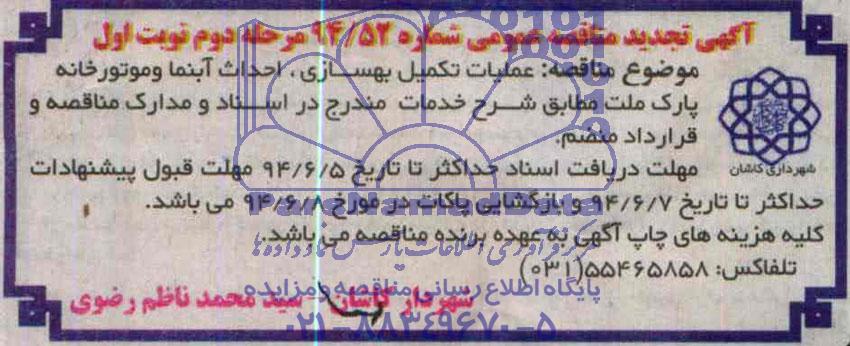 آگهی تجدید مناقصه عمومی شماره ۹۴/۵۲ مرحله دوم نوبت اول
موضوع مناقصه: عملیات تکمیل بهسازی، احداث آبنما وموتورخانه
پارک ملت مطابق شرح خدمات مندرج در اسناد و مدارک مناقصه و
قرارداد منضم.
شهرداری کاشان
مهلت دریافت اسناد حداکثر تا تاریخ ۹۴/۶/۵ مهلت قبول پیشنهادات
حداکثر تا تاریخ ۹۴/۶/۷ و بازگشایی پاکات در مورخ ۹۴/۶/۸ می باشد.
کلیه هزینه های چاپ آگهی به عهده برنده مناقصه می باشد.
تلفاکس: ۵۵۴۶۵۸۵۸(۰۳۱)
شهردار کاشان - سید محمد ناظم رضوی
پایگاه اطلاع رسانی مناقصه و مزایده
۰۲۱-۸۸۳۴۹۶۷۰-۵